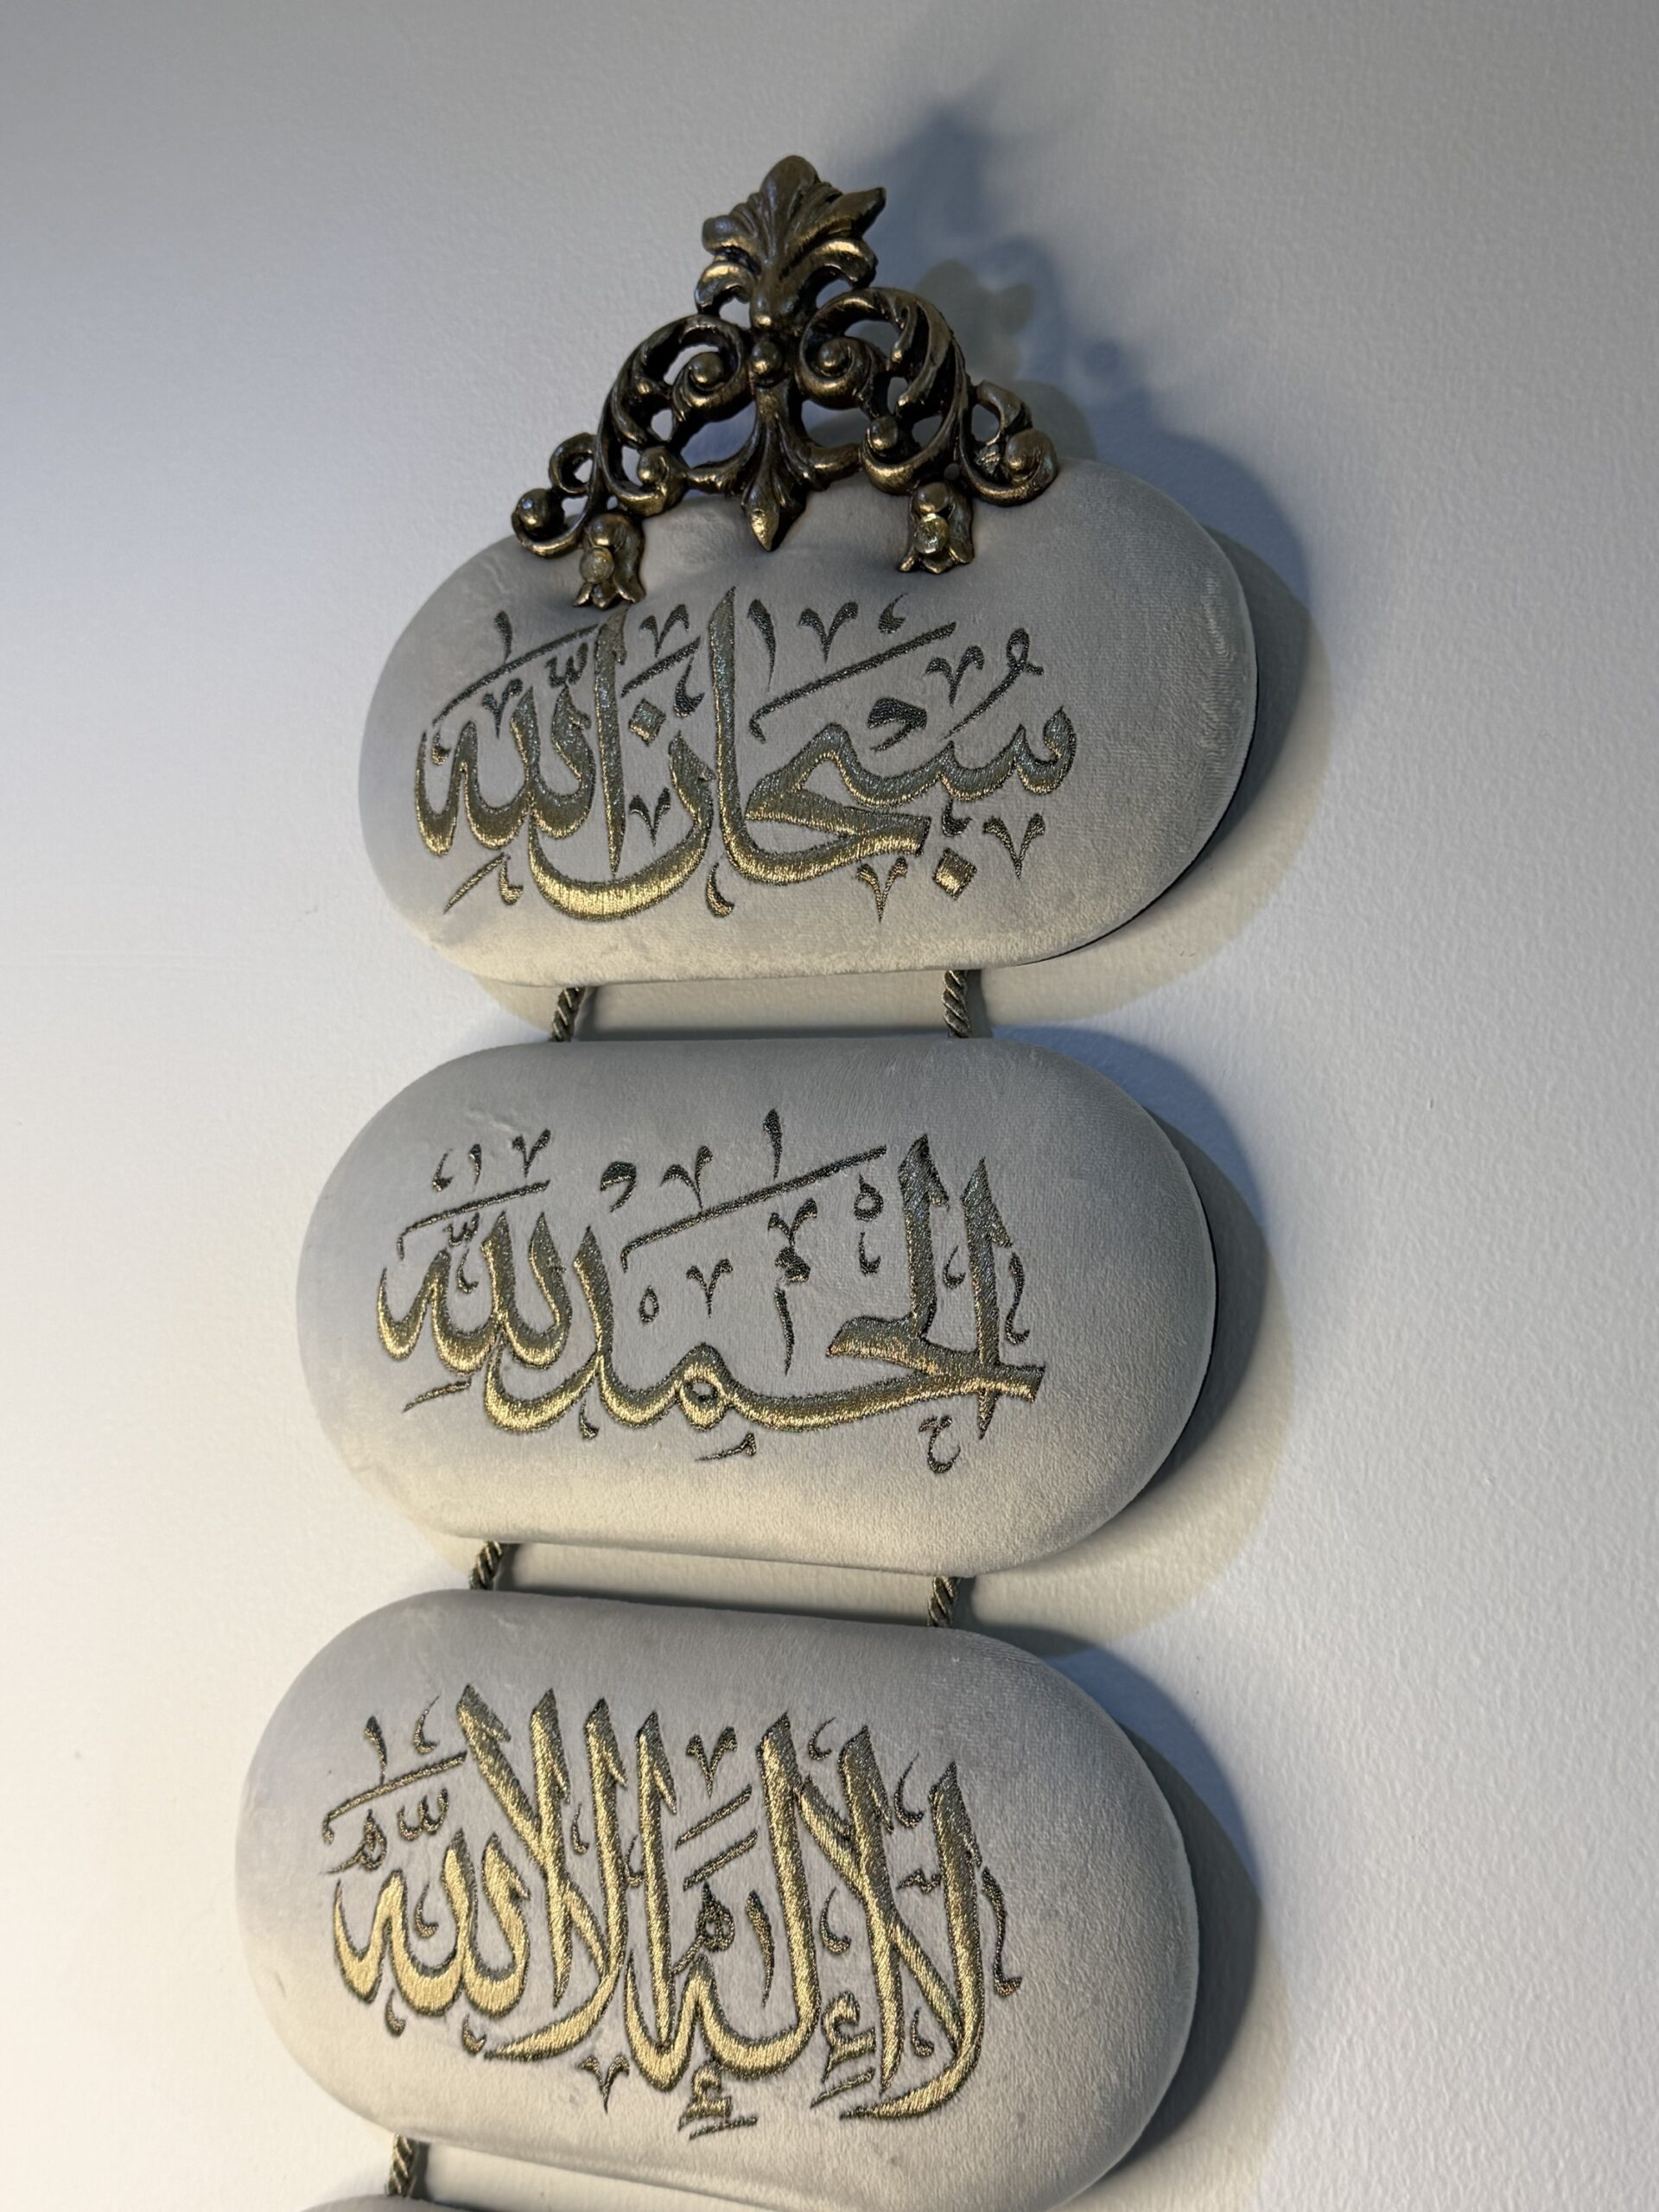 سُبْحَانَ اللهِ
الْحَمْدُ لِلّٰهِ
لَا إِلٰهَ إِلَّا اللهُ